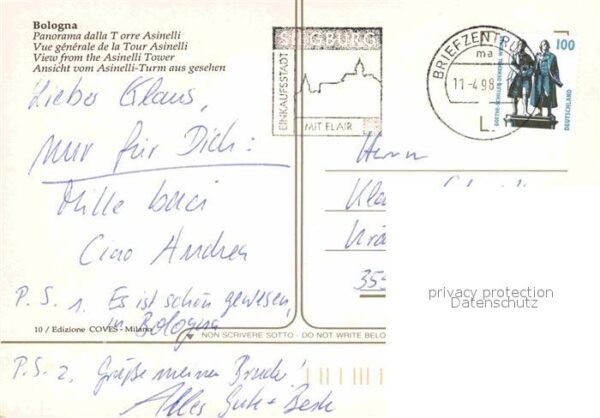 Bologna
Panorama dalla T orre Asinelli
Vue générale de la Tour Asinelli
View from the Asinelli Tower
Ansicht vom Asinelli-Turm aus gesehen
Lieber Klaus,
nur für Dich:
Mille baci
Ciao Andrea
P.S. 1. Es ist schön gewesen,
in Bologna
10 / Edizione COVES - Milano
NON SCRIVERE SOTTO - DO NOT WRITE BELO
P.S. 2. Grüße meinen Bruder!
Alles Gute +
SIEGBURG
EINKAUFSSTADT
MIT FLAIR
BRIEFZENTRU
ma
11-4.98
100
GOETHE-SCHILLER-DENKMAL
DEUTSCHLAND
Herrn
Kla
353
privacy protection
Datenschutz